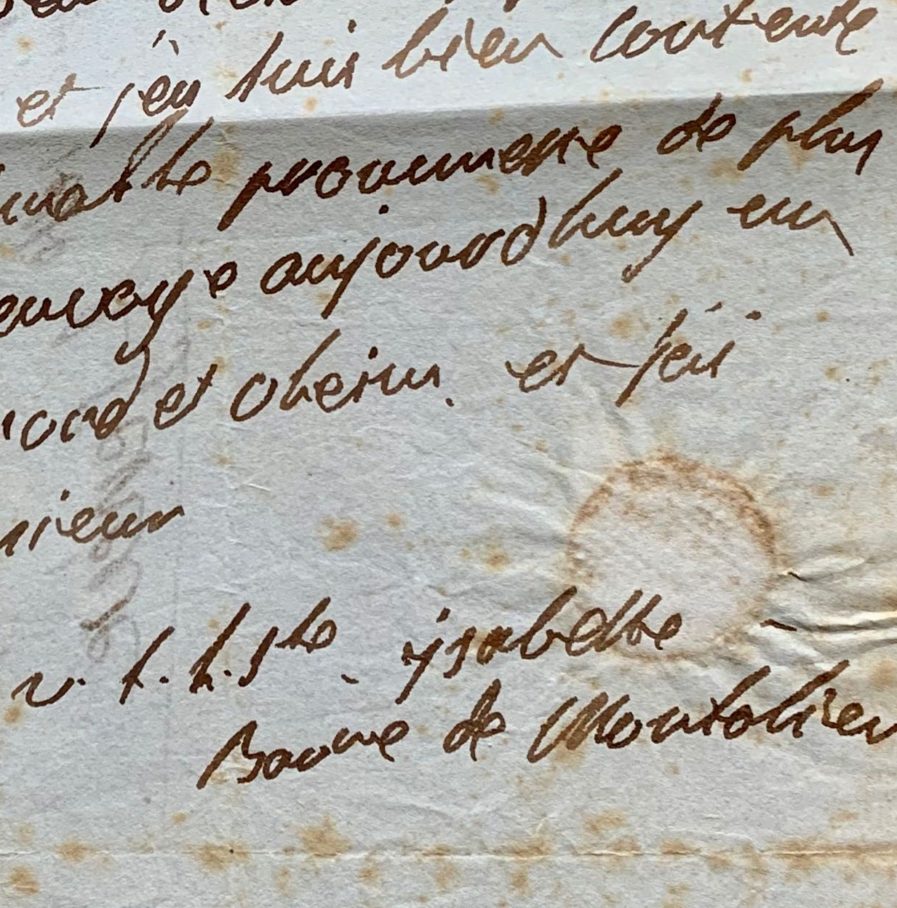 et j'en suis bien contente
promesse de plus
envoye aujourdhuy un
nord et oberim. et suis
nieur
v. t. h. Ste. ysabelle
Baone de Montolieu